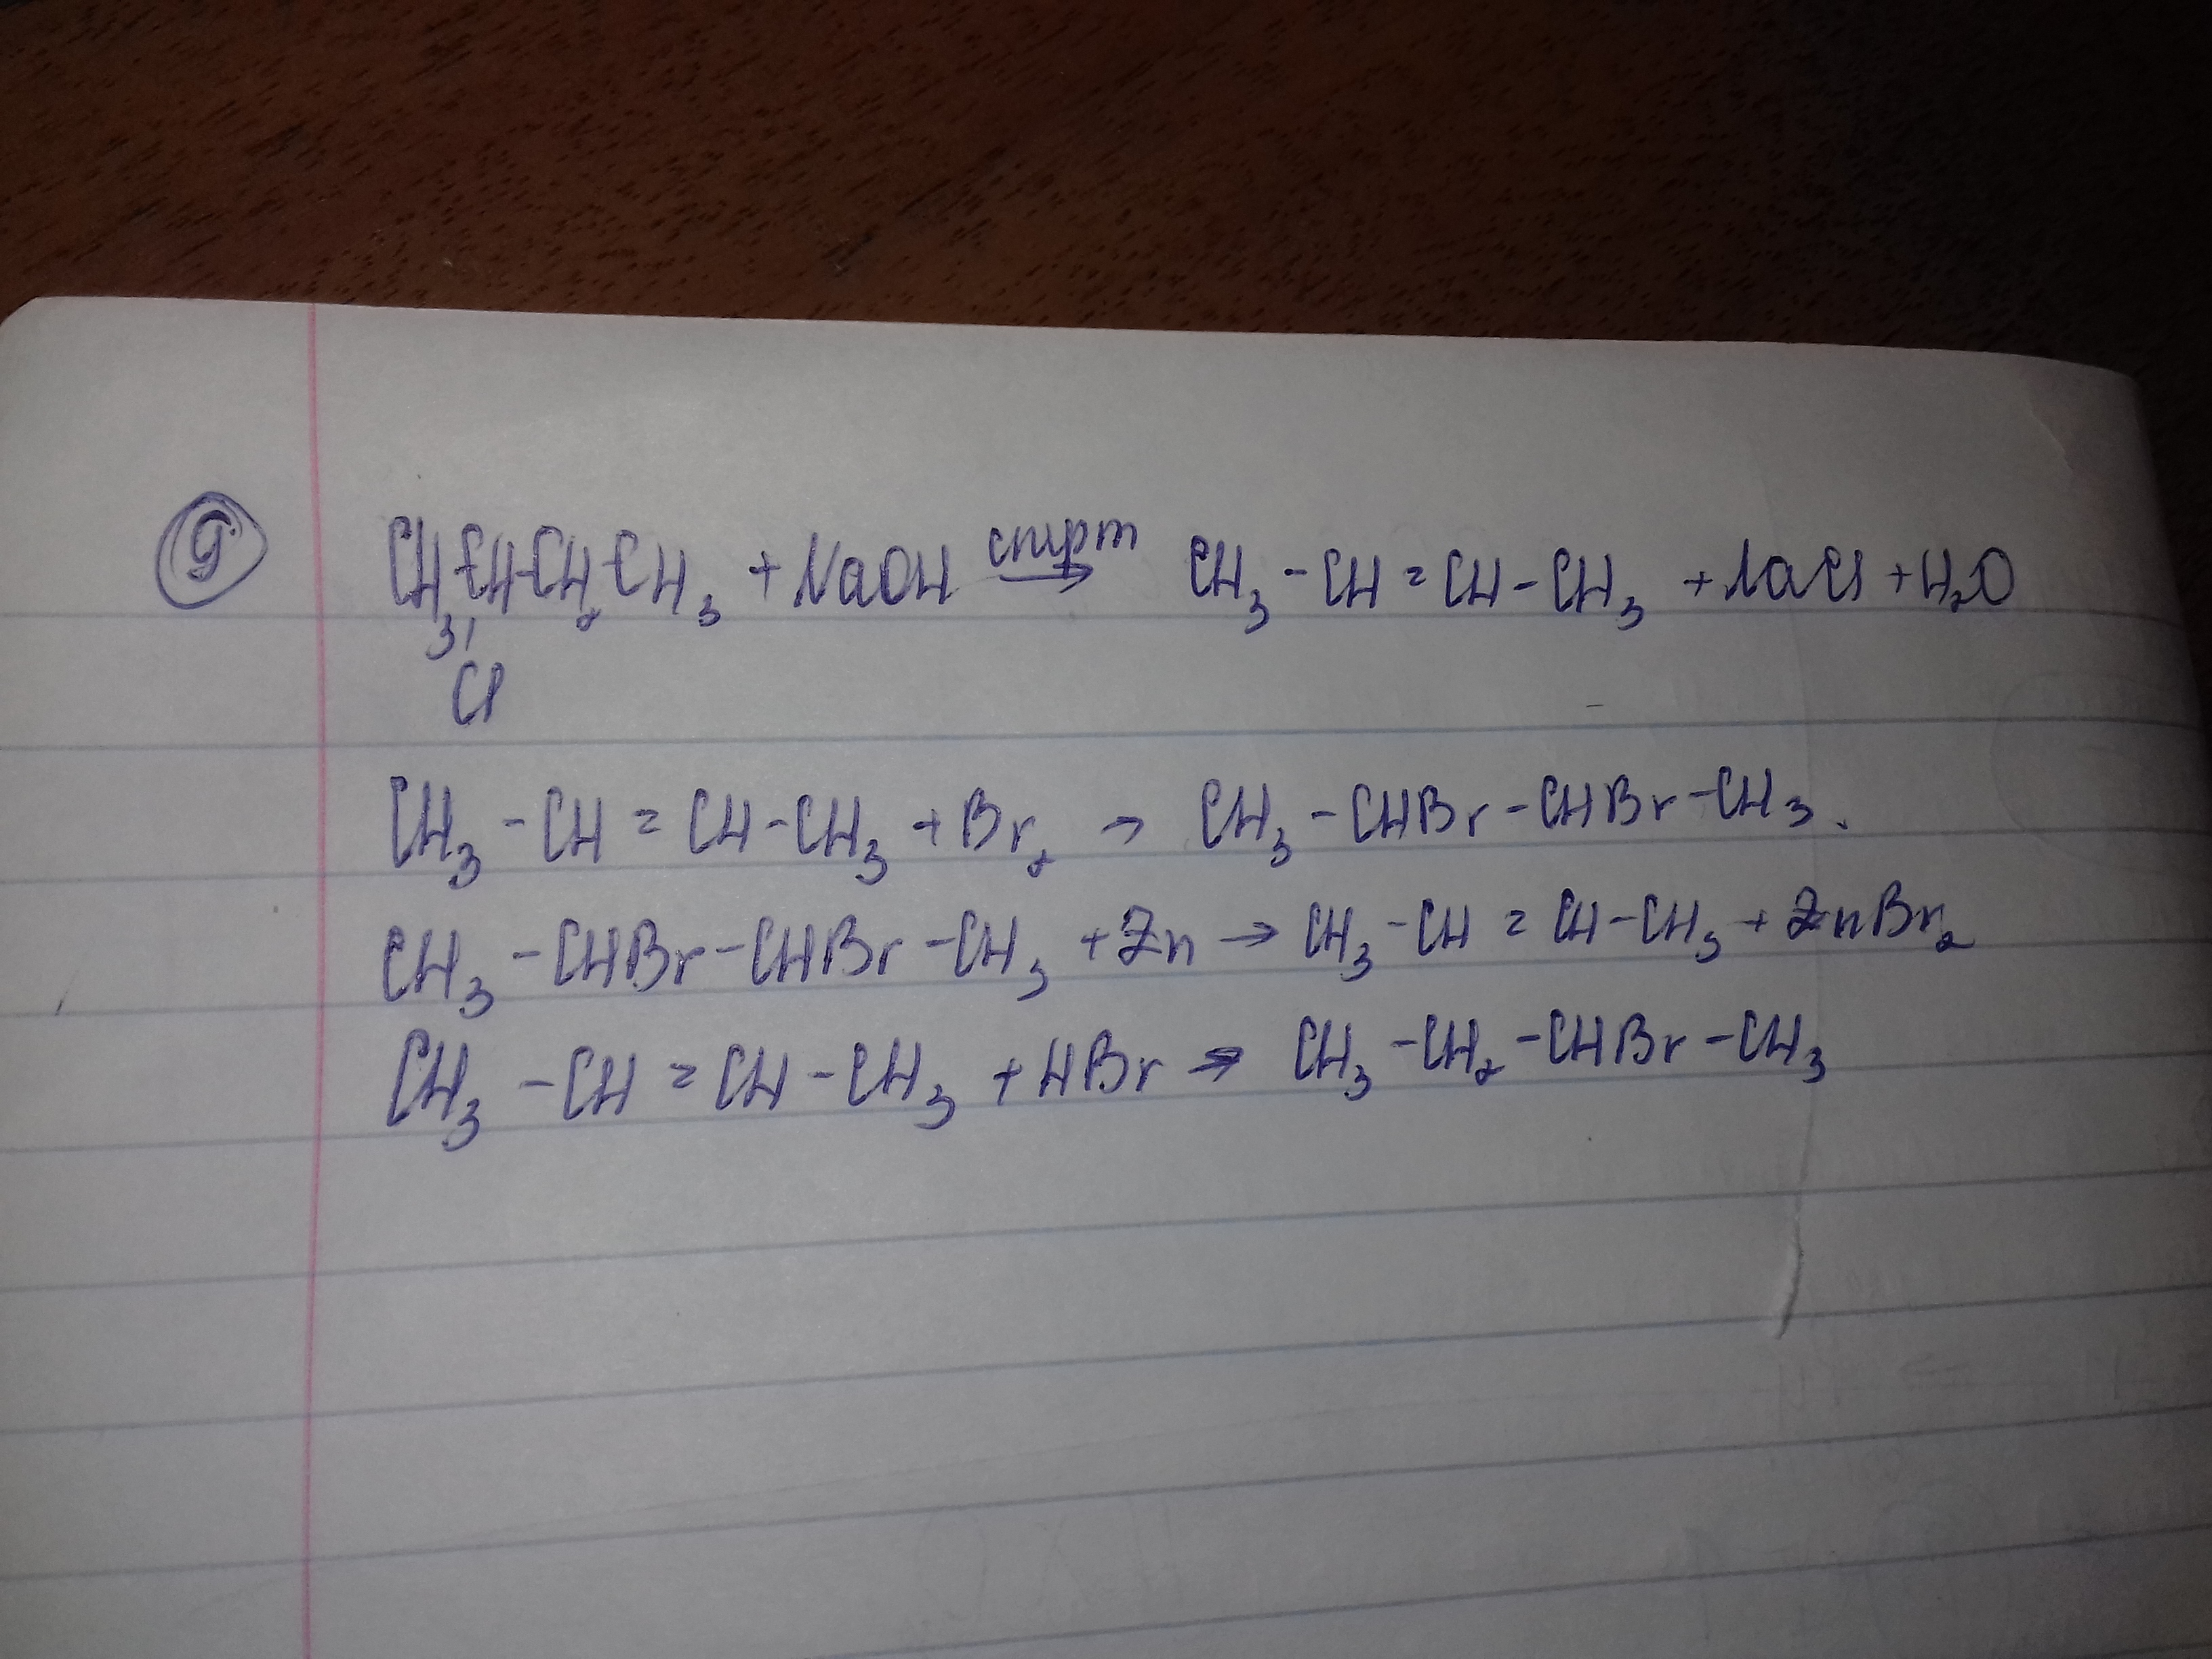 9
спирт
CH₃-CH-CH₂-CH₃ + NaOH → CH₃-CH=CH-CH₃ + NaCl + H₂O
Cl
CH₃-CH=CH-CH₃ + Br₂ → CH₃-CHBr-CHBr-CH₃.
CH₃-CHBr-CHBr-CH₃ + Zn → CH₃-CH=CH-CH₃ + ZnBr₂
CH₃-CH=CH-CH₃ + HBr → CH₃-CH₂-CHBr-CH₃